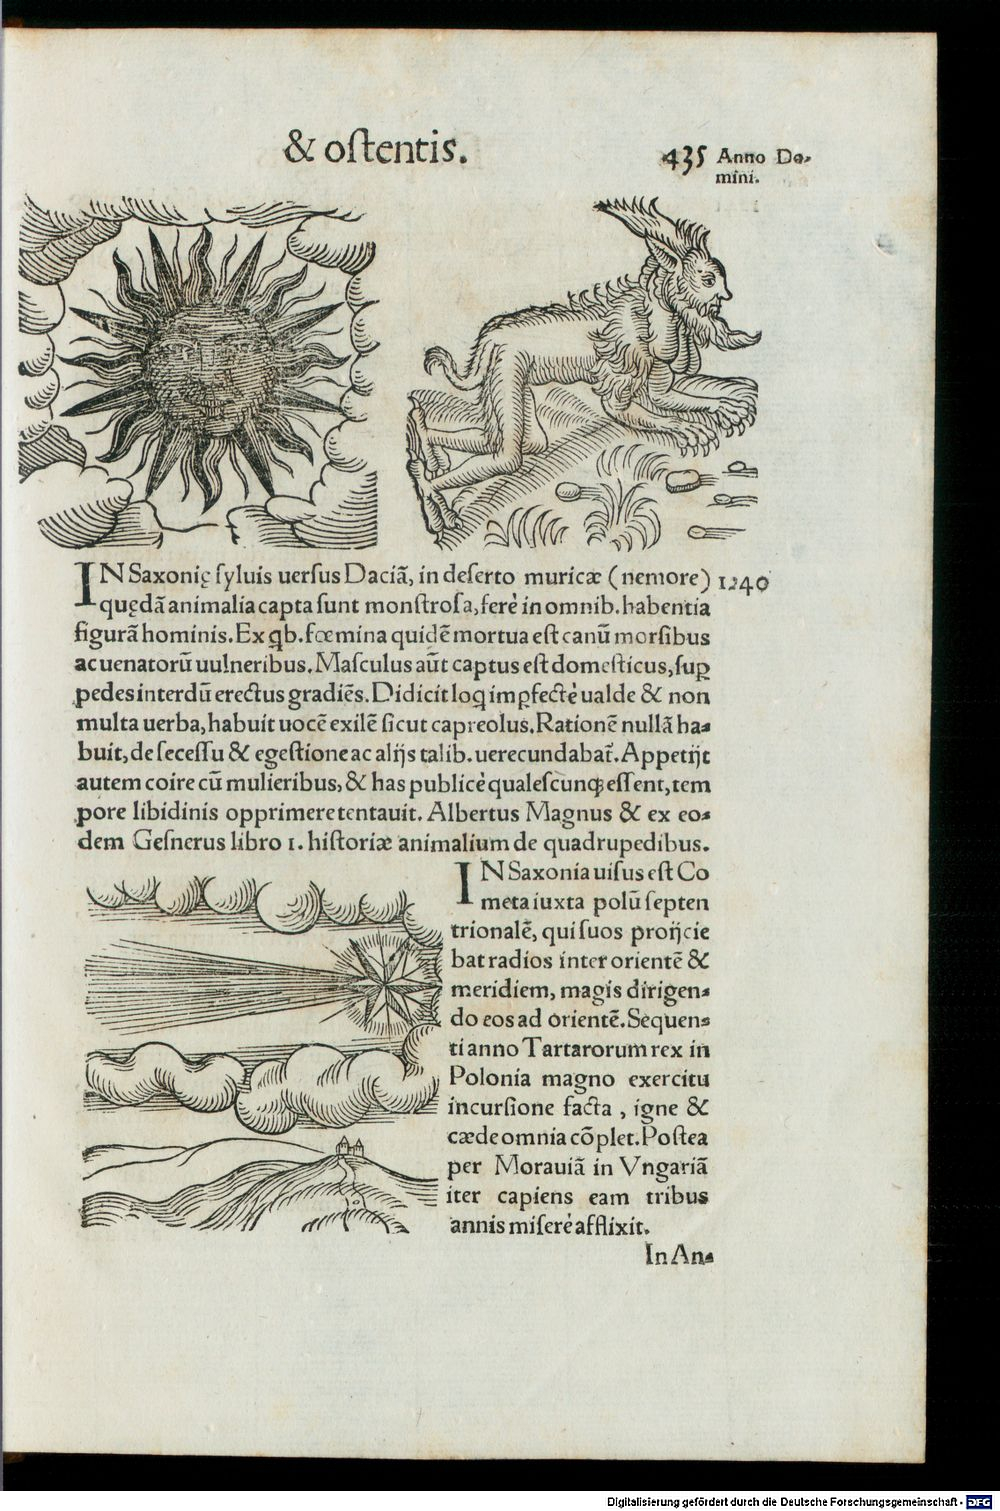 & oſtentis.
435 Anno Do⸗
mini.
IN Saxonię ſyluis uerſus Daciã, in deſerto muricæ (nemore) 1240
quędã animalia capta ſunt monſtroſa, ferè in omnib. habentia
figurã hominis. Ex qb. fœmina quidẽ mortua eſt canũ morſibus
ac uenatorũ uulneribus. Maſculus aũt captus eſt domeſticus, ſuꝑ
pedes interdũ erectus gradiẽs. Didicit loq imꝑfectè ualde & non
multa uerba, habuit uocẽ exilẽ ſicut capreolus. Rationẽ nullã ha⸗
buit, de ſeceſſu & egeſtione ac alijs talib. uerecundabat̃. Appetijt
autem coire cũ mulieribus, & has publicè qualeſcunqꝫ eſſent, tem
pore libidinis opprimere tentauit. Albertus Magnus & ex eo⸗
dem Geſnerus libro 1. hiſtoriæ animalium de quadrupedibus.
IN Saxonia uiſus eſt Co
meta iuxta polũ ſepten
trionalẽ, qui ſuos proijcie
bat radios inter orientẽ &
meridiem, magis dirigen⸗
do eos ad orientẽ. Sequen⸗
ti anno Tartarorum rex in
Polonia magno exercitu
incurſione facta , igne &
cæde omnia cõplet. Poſtea
per Morauiã in Vngariã
iter capiens eam tribus
annis miſerè afflixit.
In An⸗
Digitalisierung gefördert durch die Deutsche Forschungsgemeinschaft - DFG